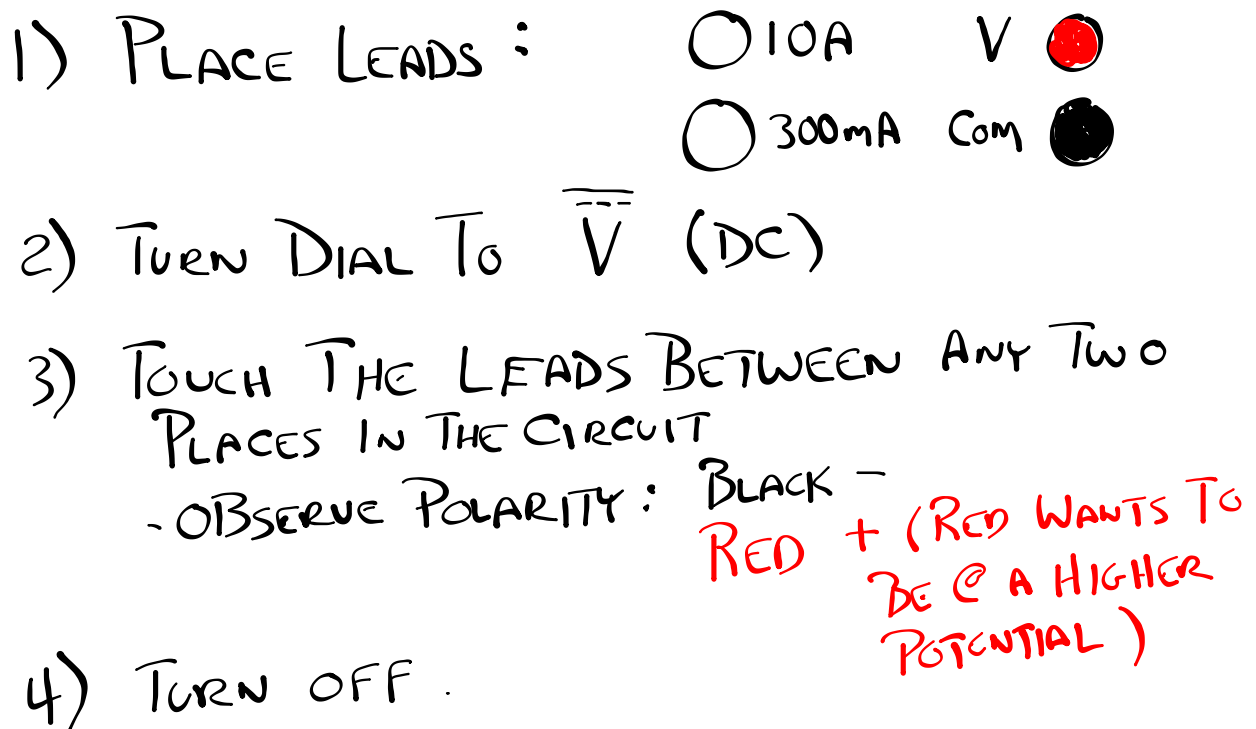 1) PLACE LEADS : 10A V
300mA COM
2) TURN DIAL TO V (DC)
3) TOUCH THE LEADS BETWEEN ANY TWO
PLACES IN THE CIRCUIT
- OBSERVE POLARITY : BLACK -
RED + (RED WANTS TO
BE @ A HIGHER
POTENTIAL)
4) TURN OFF.